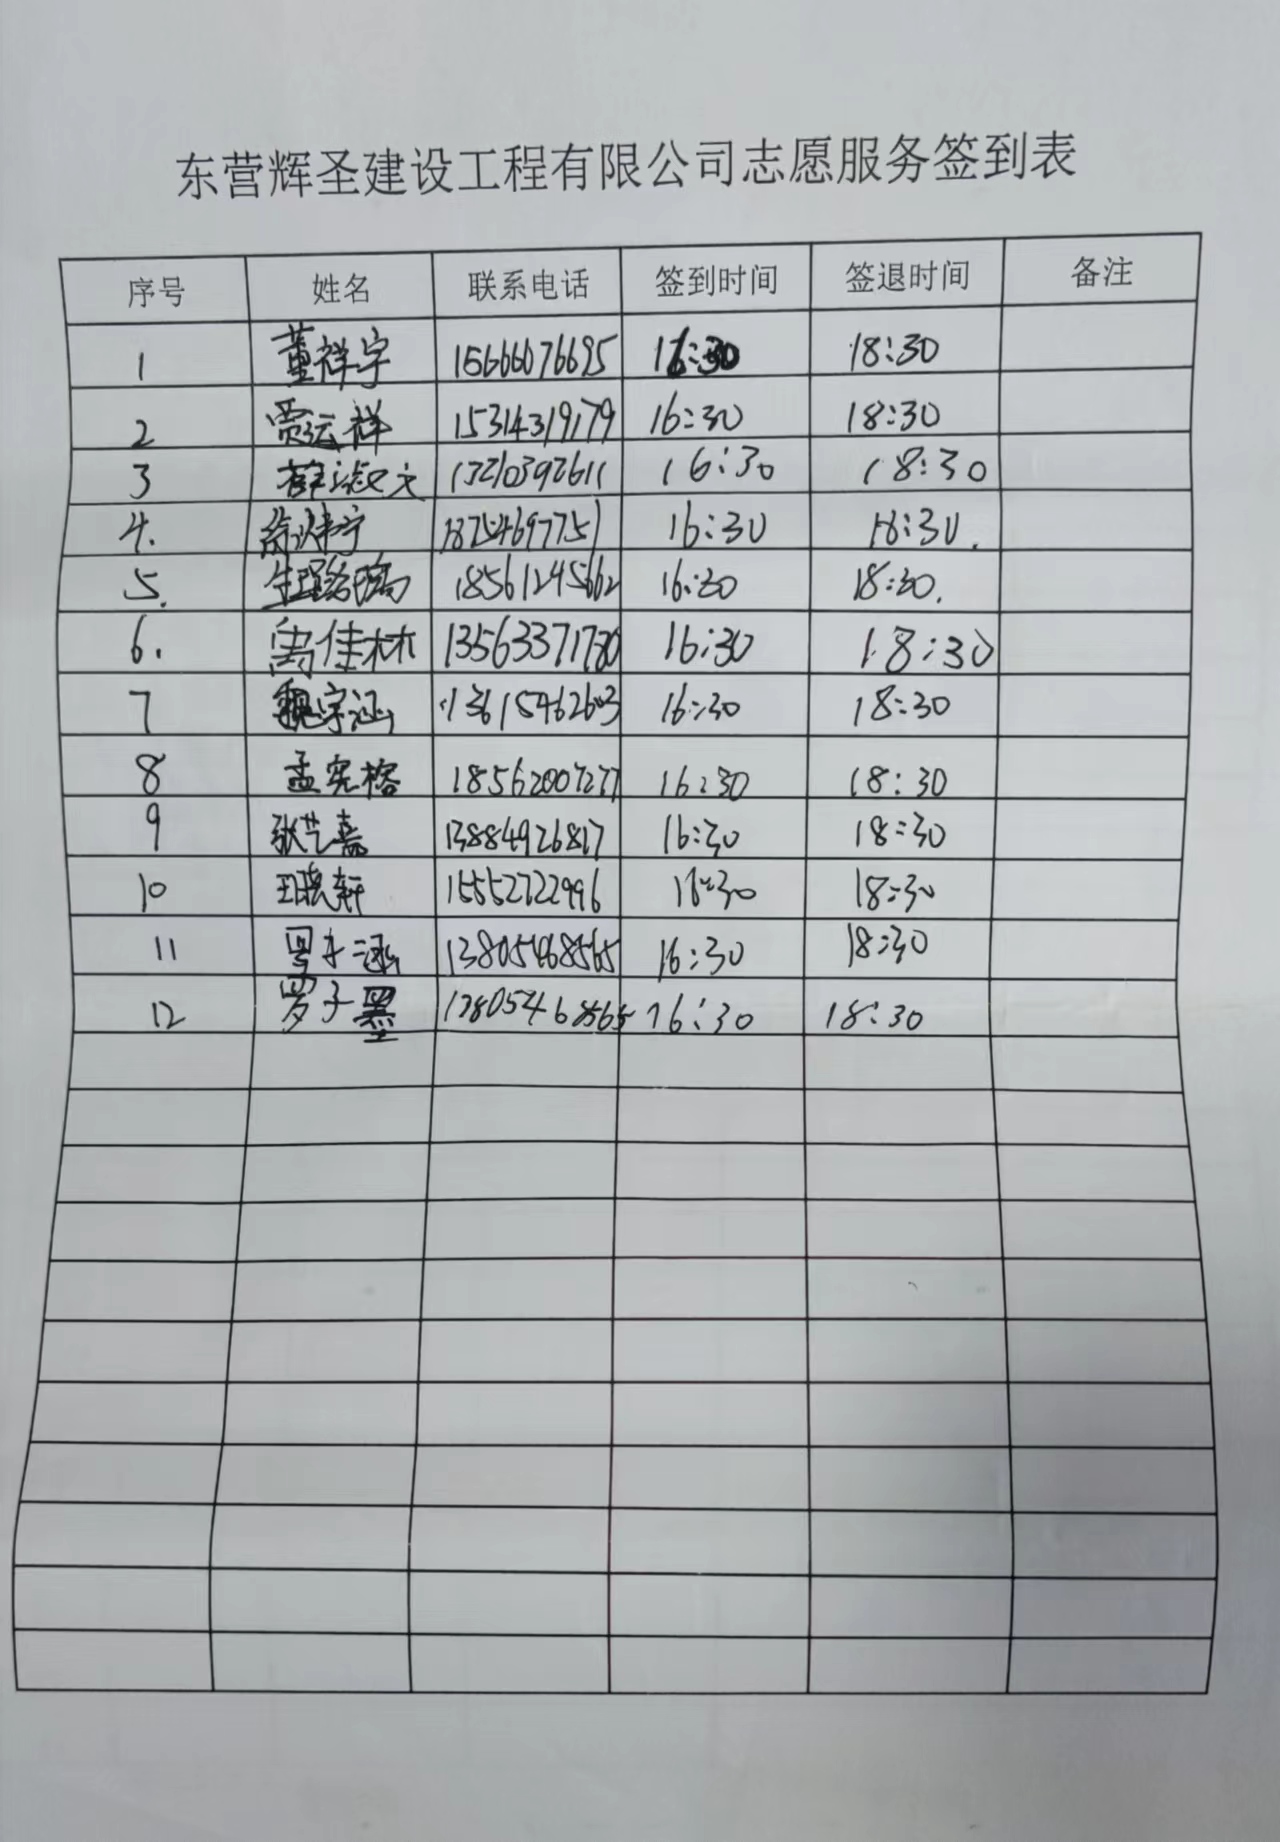 东营辉圣建设工程有限公司志愿服务签到表
序号 姓名 联系电话 签到时间 签退时间 备注
1 董祥宇 15666076695 16:30 18:30
2 贾运祥 15314319179 16:30 18:30
3 16:30 18:30
4. 18254697751 16:30 18:30.
5. 18561245662 16:30 18:30.
6. 禹佳林 13563371780 16:30 18:30
7 魏宇涵 13615462603 16:30 18:30
8 孟宪榕 18562007277 16:30 18:30
9 张艺嘉 13884926817 16:30 18:30
10 15552722996 16:30 18:30
11 罗子涵 13805468565 16:30 18:30
12 罗子墨 13805468565 16:30 18:30